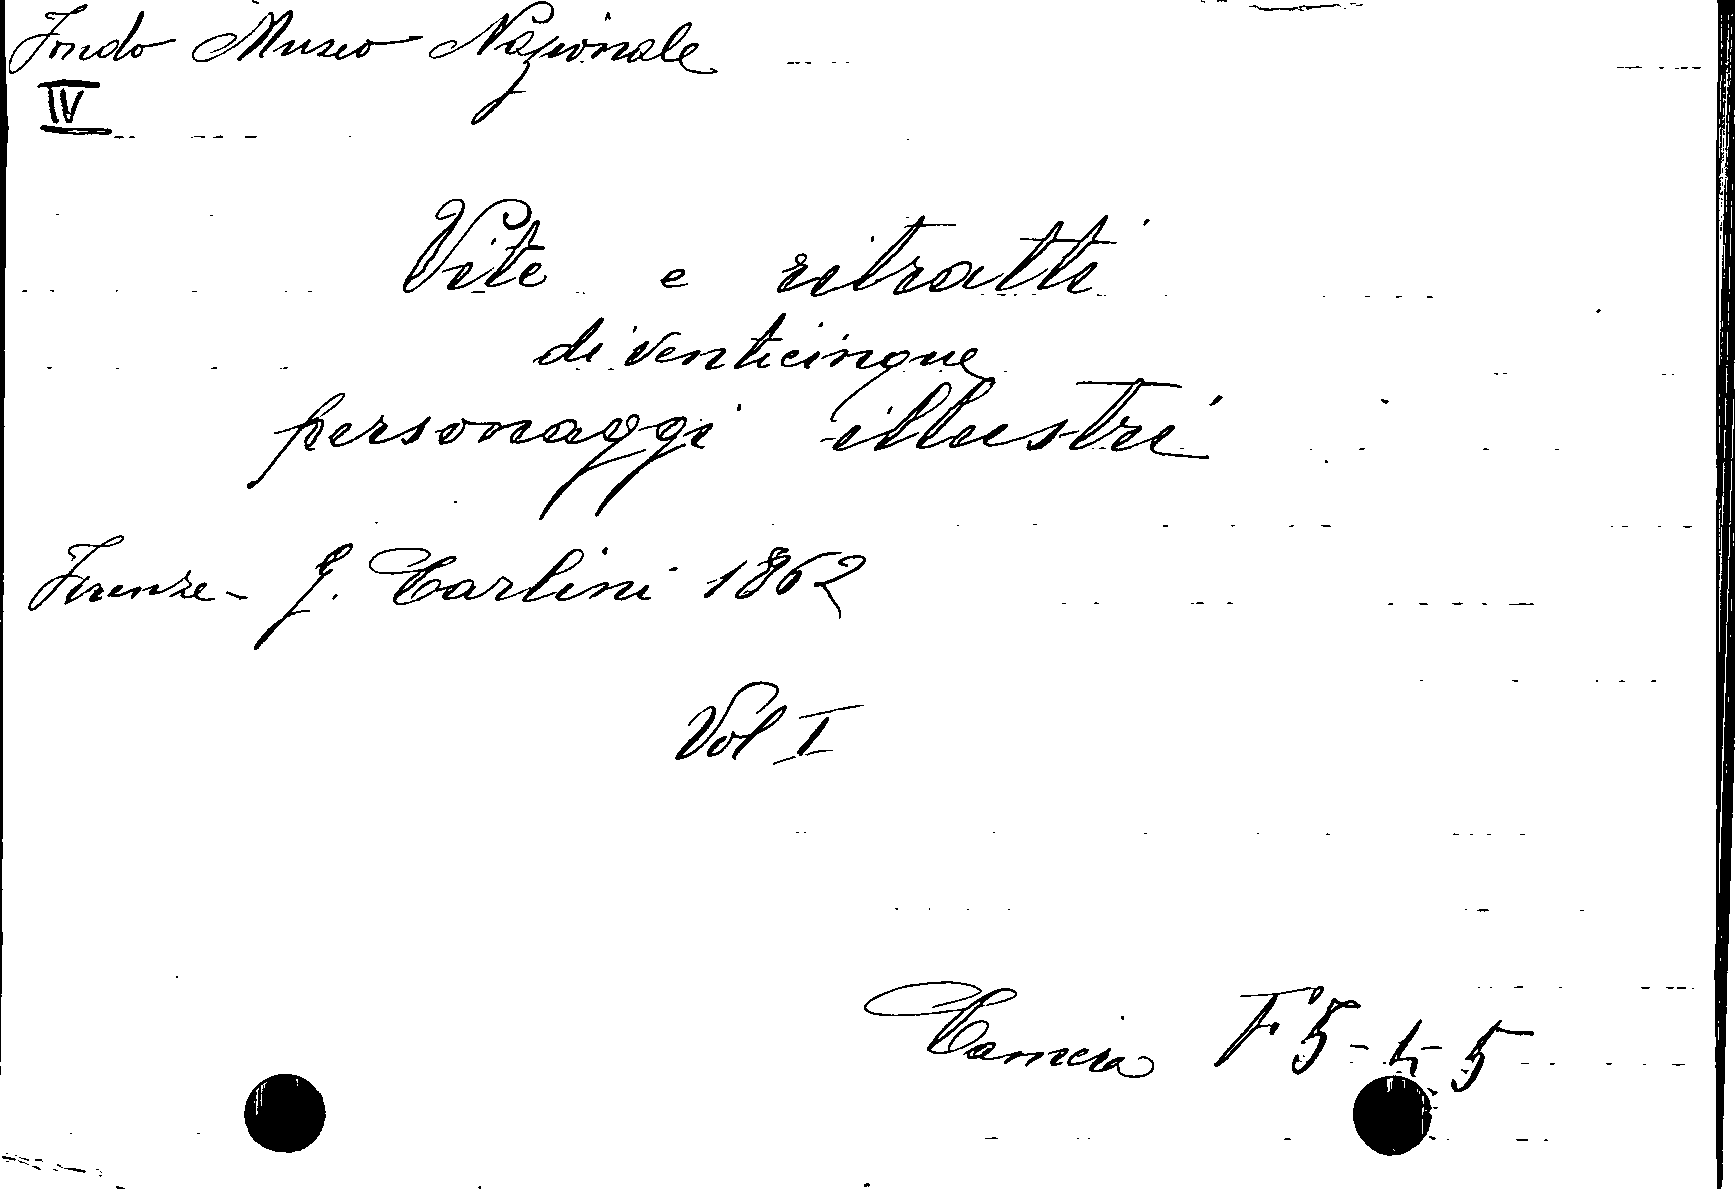 Fondo Museo Nazionale
IV
Vite e ritratti
di venticinque
personaggi illustri
Firenze - G. Carlini 1862
Vol I
Camera F 5 - 5